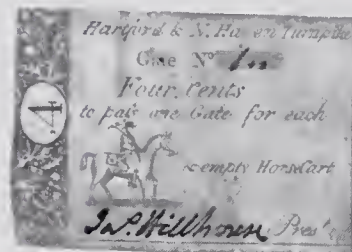 Hartford & N. Haven Turnpike
Gate Nº
4
Four Cents
to pass one Gate for each
& empty HorseCart
Jas. Hillhouse Prest